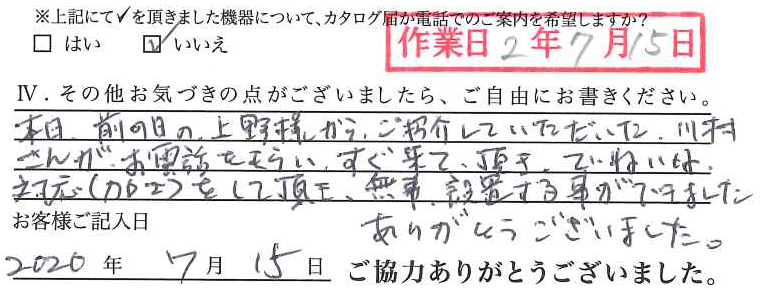 ※上記にて✓を頂きました機器について、カタログ届か電話でのご案内を希望しますか？
□ はい ☑ いいえ
作業日 2年7月15日
Ⅳ．その他お気づきの点がございましたら、ご自由にお書きください。
本日、前の日の、上野様から、ご紹介していただいた、川村
さんが、お電話をもらい、すぐ来て、頂き、ていねいな、
対応(加工)をして頂き、無事、設置する事ができました
ありがとうございました。
お客様ご記入日
2020 年 7 月 15 日 ご協力ありがとうございました。